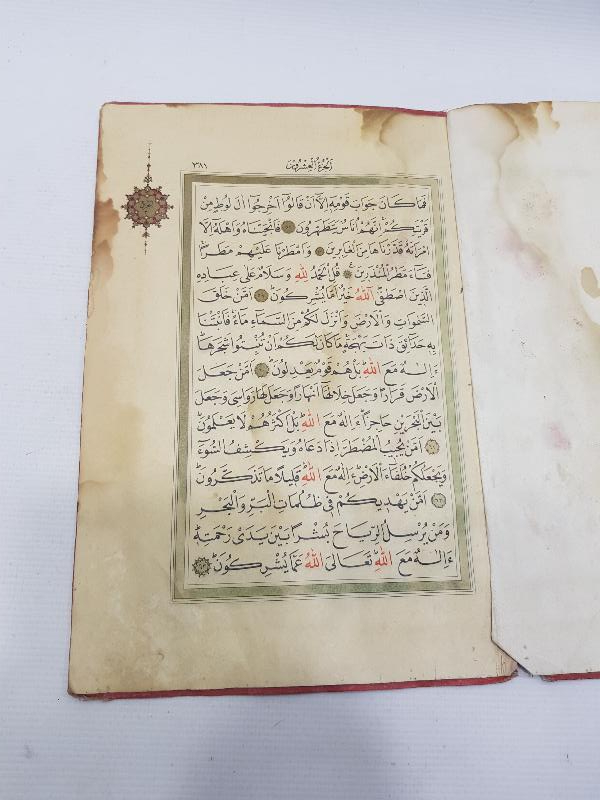 الجزء العشرون ٣٨١
فَمَا كَانَ جَوَابَ قَوْمِهٖٓ اِلَّٓا اَنْ قَالُٓوا اَخْرِجُٓوا اٰلَ لُوطٍ مِنْ
قَرْيَتِكُمْ اِنَّهُمْ اُنَاسٌ يَتَطَهَّرُونَ ٥٦ فَاَنْجَيْنَاهُ وَاَهْلَهُٓ اِلَّا
امْرَاَتَهُ قَدَّرْنَاهَا مِنَ الْغَابِرِينَ ٥٧ وَاَمْطَرْنَا عَلَيْهِمْ مَطَرًا
فَسَٓاءَ مَطَرُ الْمُنْذَرِينَ ٥٨ قُلِ الْحَمْدُ لِلّٰهِ وَسَلَامٌ عَلٰى عِبَادِهِ
الَّذِينَ اصْطَفٰى اٰللّٰهُ خَيْرٌ اَمَّا يُشْرِكُونَ ٥٩ اَمَّنْ خَلَقَ
السَّمٰوَاتِ وَالْاَرْضَ وَاَنْزَلَ لَكُمْ مِنَ السَّمَٓاءِ مَٓاءً فَاَنْبَتْنَا
بِهِ حَدَٓائِقَ ذَاتَ بَهْجَةٍ مَا كَانَ لَكُمْ اَنْ تُنْبِتُوا شَجَرَهَا
ءَاِلٰهٌ مَعَ اللّٰهِ بَلْ هُمْ قَوْمٌ يَعْدِلُونَ ٦٠ اَمَّنْ جَعَلَ
الْاَرْضَ قَرَارًا وَجَعَلَ خِلَالَهَٓا اَنْهَارًا وَجَعَلَ لَهَا رَوَاسِىَ وَجَعَلَ
بَيْنَ الْبَحْرَيْنِ حَاجِزًا ءَاِلٰهٌ مَعَ اللّٰهِ بَلْ اَكْثَرُهُمْ لَا يَعْلَمُونَ
٦١ اَمَّنْ يُجِيبُ الْمُضْطَرَّ اِذَا دَعَاهُ وَيَكْشِفُ السُّٓوءَ
وَيَجْعَلُكُمْ خُلَفَٓاءَ الْاَرْضِ ءَاِلٰهٌ مَعَ اللّٰهِ قَلِيلًا مَا تَذَكَّرُونَ
٦٢ اَمَّنْ يَهْدِيكُمْ فِى ظُلُمَاتِ الْبَرِّ وَالْبَحْرِ
وَمَنْ يُرْسِلُ الرِّيَاحَ بُشْرًا بَيْنَ يَدَىْ رَحْمَتِهِ
ءَاِلٰهٌ مَعَ اللّٰهِ تَعَالَى اللّٰهُ عَمَّا يُشْرِكُونَ ٦٣